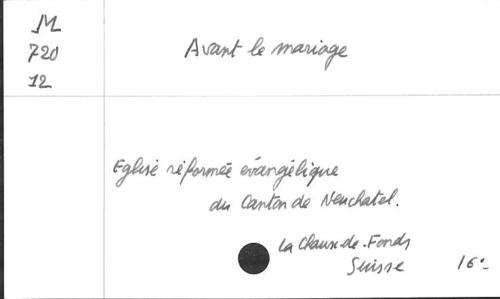 M
720
12
Avant le mariage
Eglise réformée évangélique
du Canton de Neuchatel.
La Chaux-de-Fonds
Suisse 16°